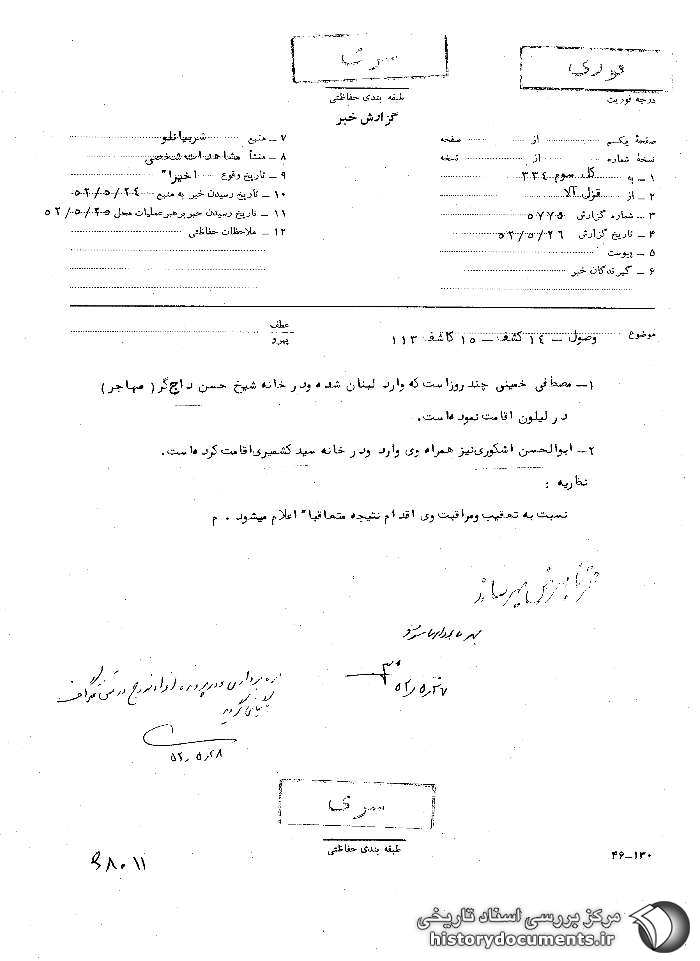 سری
فوری
طبقه بندی حفاظتی
درجه فوریت
گزارش خبر
صفحهٔ یکم از صفحه
نسخهٔ شماره از نسخه
۱ـ به کل سوم ۳۳٤
۲ـ از قزل آلا
۳ـ شماره گزارش ۵۷۷۵
۴ـ تاریخ گزارش ۵۲/۵/۲۶
۵ـ پیوست
۶ـ گیرندگان خبر
۷ـ منبع شریبانلو
۸ـ منشأ مشاهدات شخصی
۹ـ تاریخ وقوع اخیرا"
۱۰ـ تاریخ رسیدن خبر به منبع ۵۲/۵/۲٤
۱۱ـ تاریخ رسیدن خبر برهبر عملیات محل ۵۲/۵/۲۵
۱۲ـ ملاحظات حفاظتی
موضوع وصول ـ ۱٤ کشف ـ ۱۵ کاشف ۱۱۳
عطف
پیرو
۱ـ مصطفی خمینی چند روز است که وارد لبنان شده ودر خانه شیخ حسن (مهاجر)
در لیلون اقامت نموده است.
۲ـ ابوالحسن اشکوری نیز همراه وی وارد ودر خانه سید کشمیری اقامت کرده است.
نظریه :
نسبت به تعقیب ومراقبت وی اقدام نتیجه متعاقبا" اعلام میشود . م
۵۲/۵/۲۷
۵۲/۵/۲۸
سری
طبقه بندی حفاظتی
۴۶-۱۳۰
مرکز بررسی اسناد تاریخی
historydocuments.ir